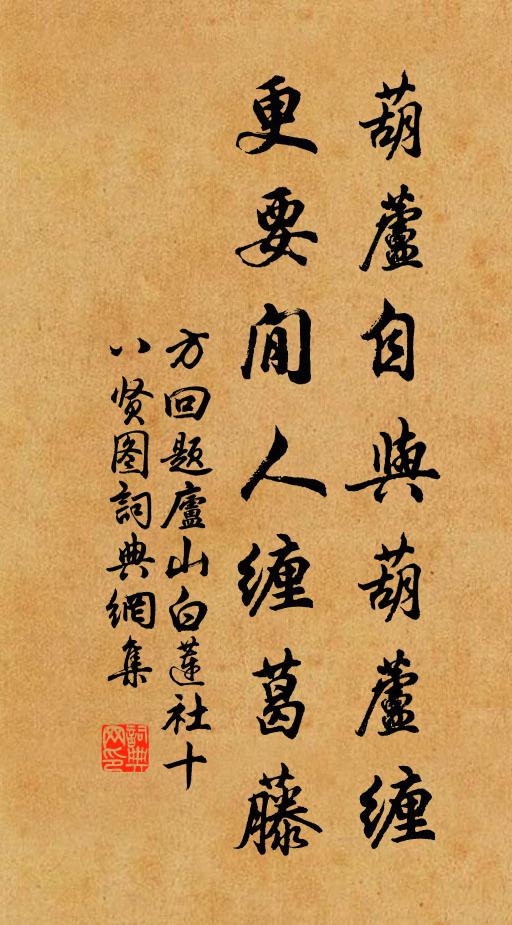 葫蘆自與葫蘆纏
更要閒人缠葛藤
方回题廬山白蓮社十
八贤图詞典網集
詞典网印